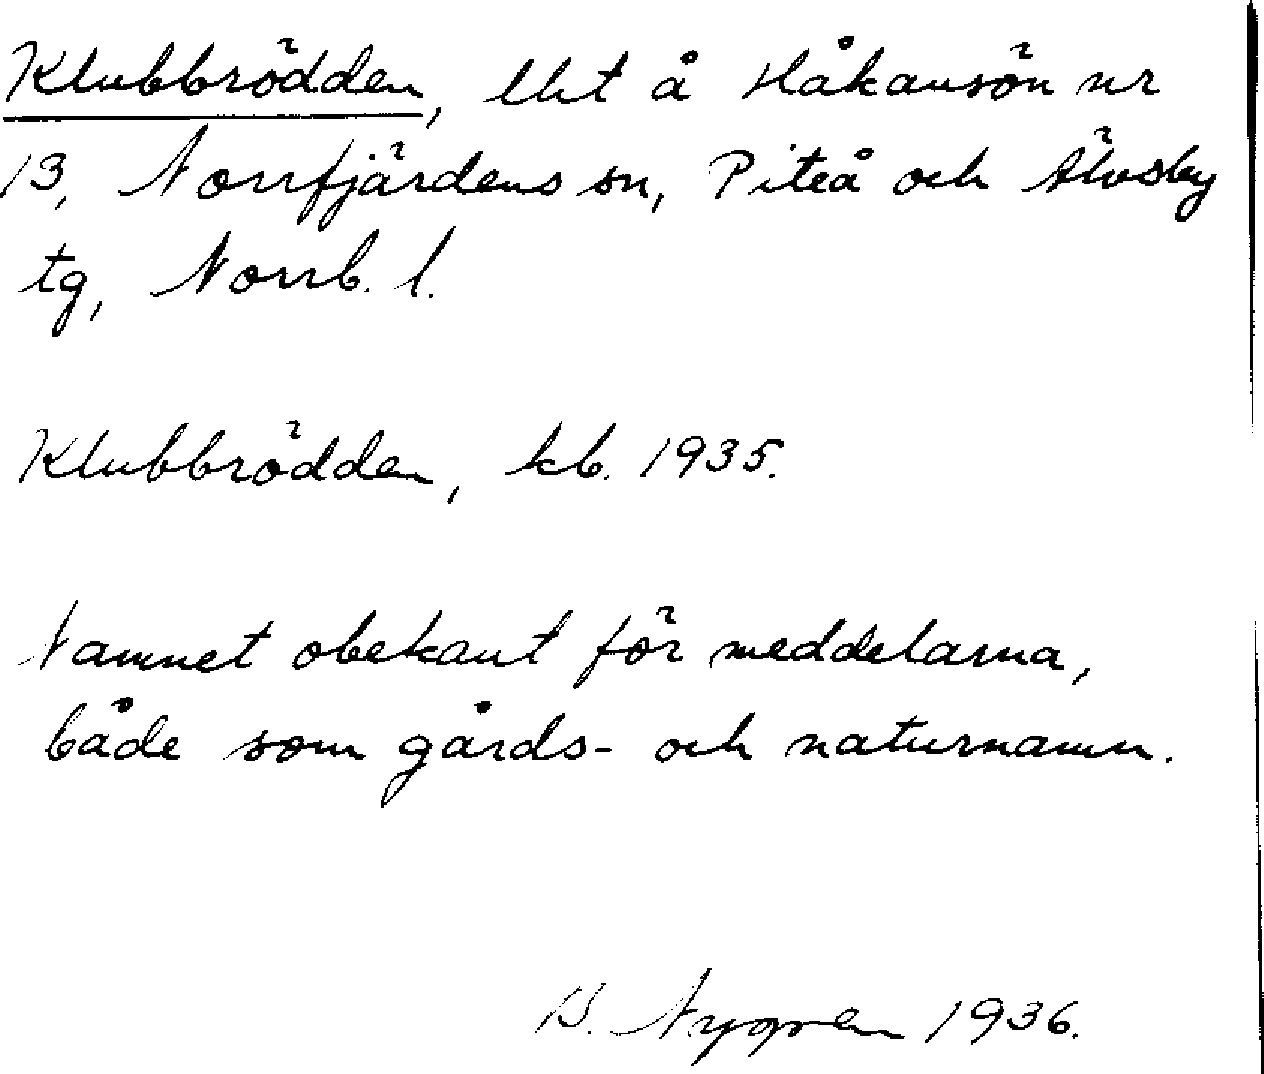 Klubbrödden, lht å Håkansön nr
13, Norrfjärdens sn, Piteå och Älvsby
tg, Norrb. l.
Klubbrödden, kb. 1935.
Namnet obekant för meddelarna,
både som gårds- och naturnamn.
B. Nygren 1936.